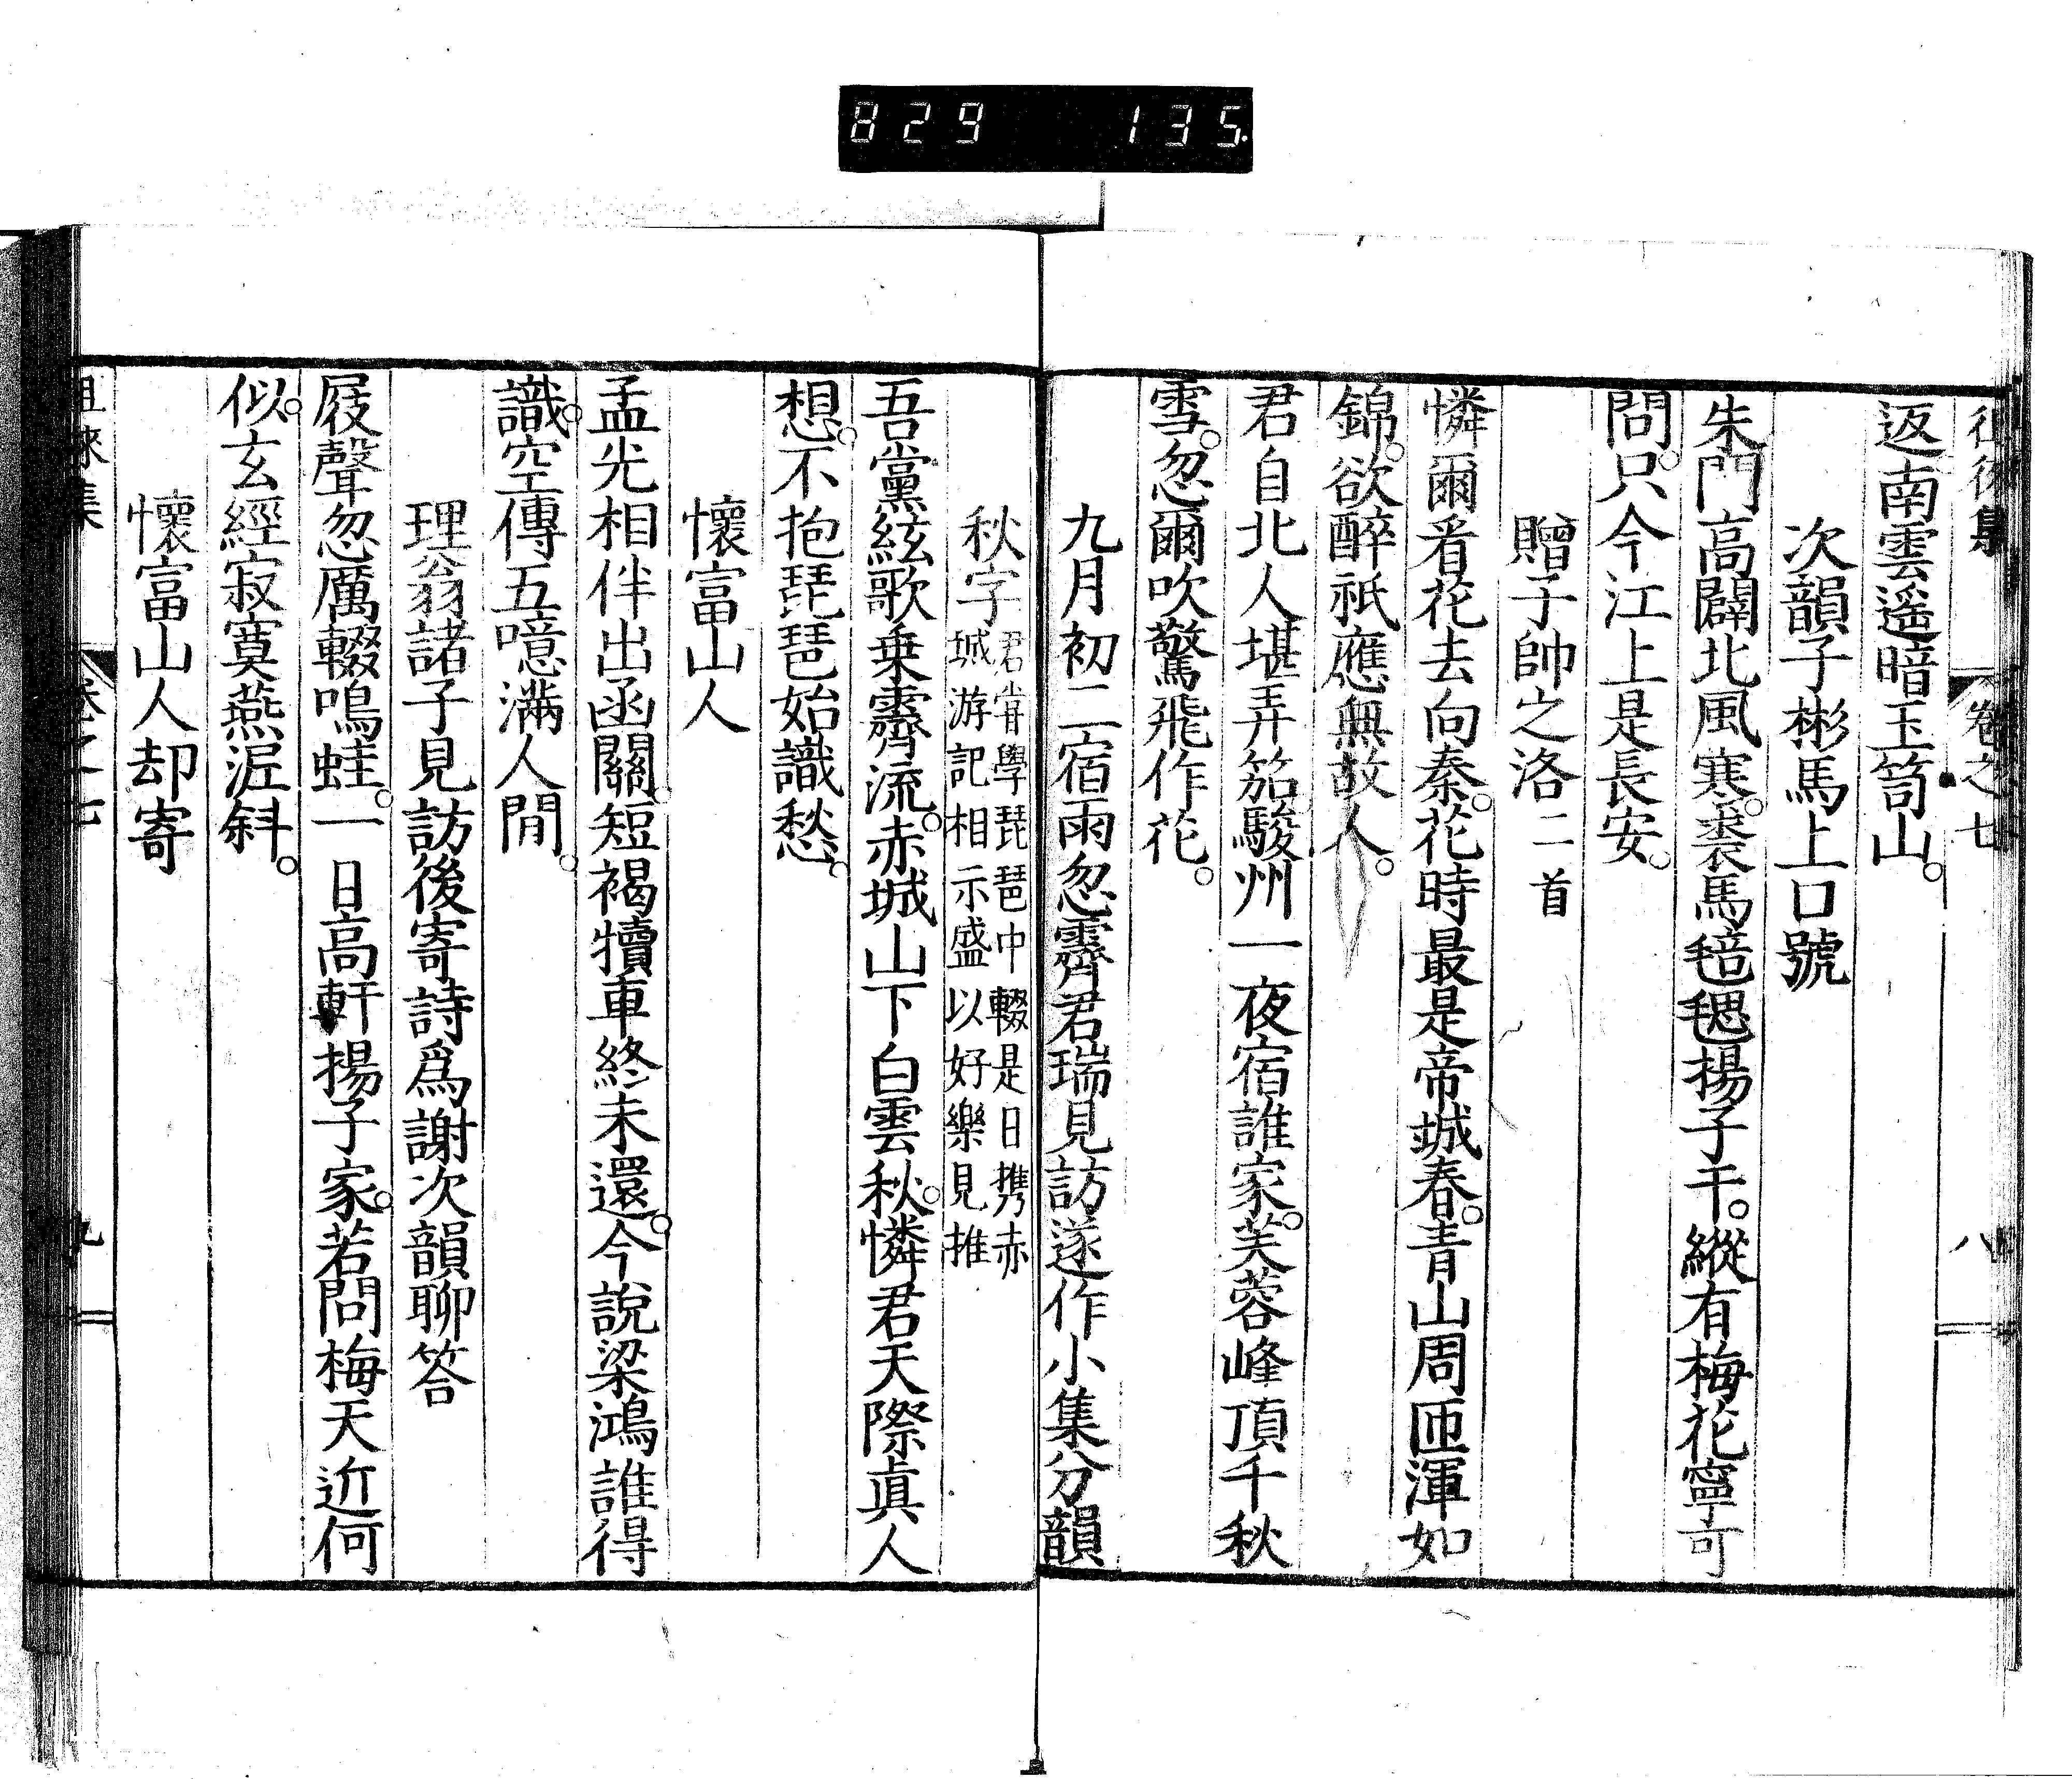 829 135.
徂徠集 卷之七 八
返南雲遥暗玉笥山。
次韻子彬馬上口號
朱門高闢北風寒。裘馬毰毸揚子干。縱有梅花寧可
問。只今江上是長安。
贈子帥之洛二首
憐爾看花去向秦。花時最是帝城春。青山周匝渾如
錦。欲醉祇應無故人。
君自北人堪弄笳駿州一夜宿誰家。芙蓉峰頂千秋
雪。忽爾吹驚飛作花。
九月初二宿雨忽霽君瑞見訪遂作小集分韻
秋字君嘗學琵琶中輟是日携赤
城游記相示盛以好樂見推
吾黨絃歌乗霽流。赤城山下白雲秋。憐君天際眞人
想。不抱琵琶始識愁。
懷富山人
孟光相伴出函關。短褐犢車終未還。今說梁鴻誰得
識。空傳五噫滿人閒。
理翁諸子見訪後寄詩爲謝次韻聊答
屐聲忽厲輟鳴蛙。一日高軒揚子家。若問梅天近何
似。玄經寂寞燕泥斜。
懷富山人却寄
徂徠集 卷之七 九